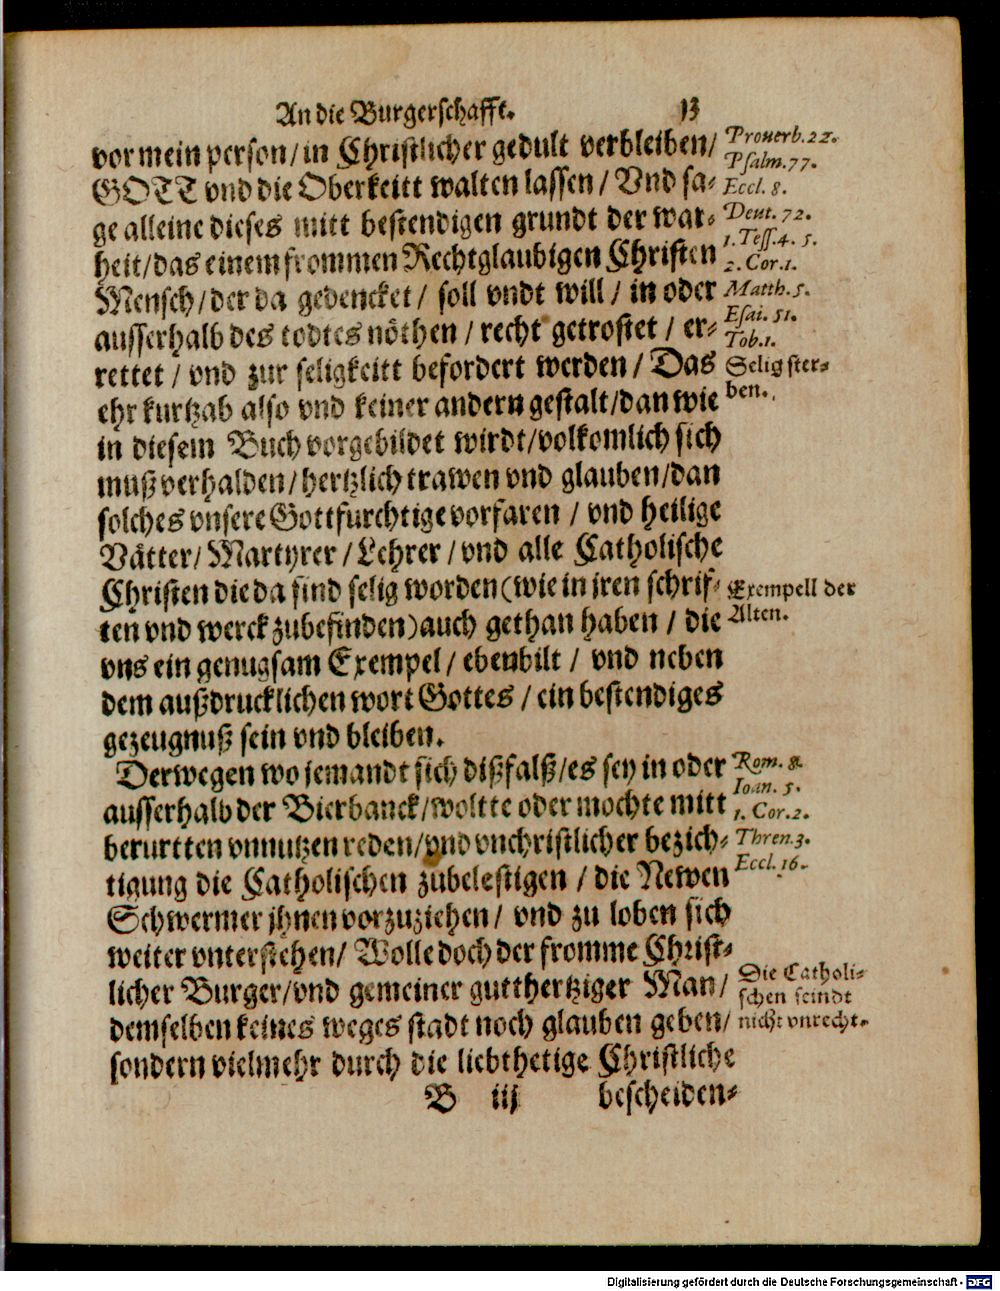 An die Burgerschafft. 13
vor mein person/ in Christlicher gedult verbleiben/
GOTT vnd die Oberkeitt walten lassen / Vnd sa-
ge alleine dieses mitt bestendigen grundt der war-
heit/das einem frommen Rechtglaubigen Christen
Mensch/der da gedencket / soll vndt will / in oder
ausserhalb des todtes nöthen / recht getrostet / er-
rettet / vnd zur seligkeitt befordert werden / Das
ehr kurtzab also vnd keiner andern gestalt/dan wie
in diesem Buch vorgebildet wirdt/volkomlich sich
muß verhalden/hertzlich trawen vnd glauben/dan
solches vnsere Gottfurchtige vorfaren / vnd heilige
Vätter/ Martyrer / Lehrer / vnd alle Catholische
Christen die da sind selig worden (wie in jren schrif-
ten vnd werck zubefinden) auch gethan haben / die
vns ein genugsam Exempel/ ebenbilt / vnd neben
dem außdrucklichen wort Gottes / ein bestendiges
gezeugnuß sein vnd bleiben.
Derwegen wo jemandt sich dißfalß/es sey in oder
ausserhalb der Bierbanck/woltte oder mochte mitt
berurtten vnnutzen reden/vnd vnchristlicher bezich-
tigung die Catholischen zubelestigen / die Newen
Schwermer jhnen vorzuziehen/ vnd zu loben sich
weiter vnterstehen/ Wolle doch der fromme Christ-
licher Burger/vnd gemeiner gutthertziger Man/
demselben keines weges stadt noch glauben geben/
sondern vielmehr durch die liebthetige Christliche
B iij bescheiden-
Prouerb.22.
Psalm.77.
Eccl. 8.
Deut. 72.
1. Tess.4. 5.
2. Cor.1.
Matth. 5.
Esai. 51.
Tob.1.
Selig ster-
ben.
Exempell der
Alten.
Rom. 8.
Ioan. 5.
1. Cor.2.
Thren.3.
Eccl.16.
Die Catholi-
schen seindt
nicht vnrecht.
Digitalisierung gefördert durch die Deutsche Forschungsgemeinschaft - DFG